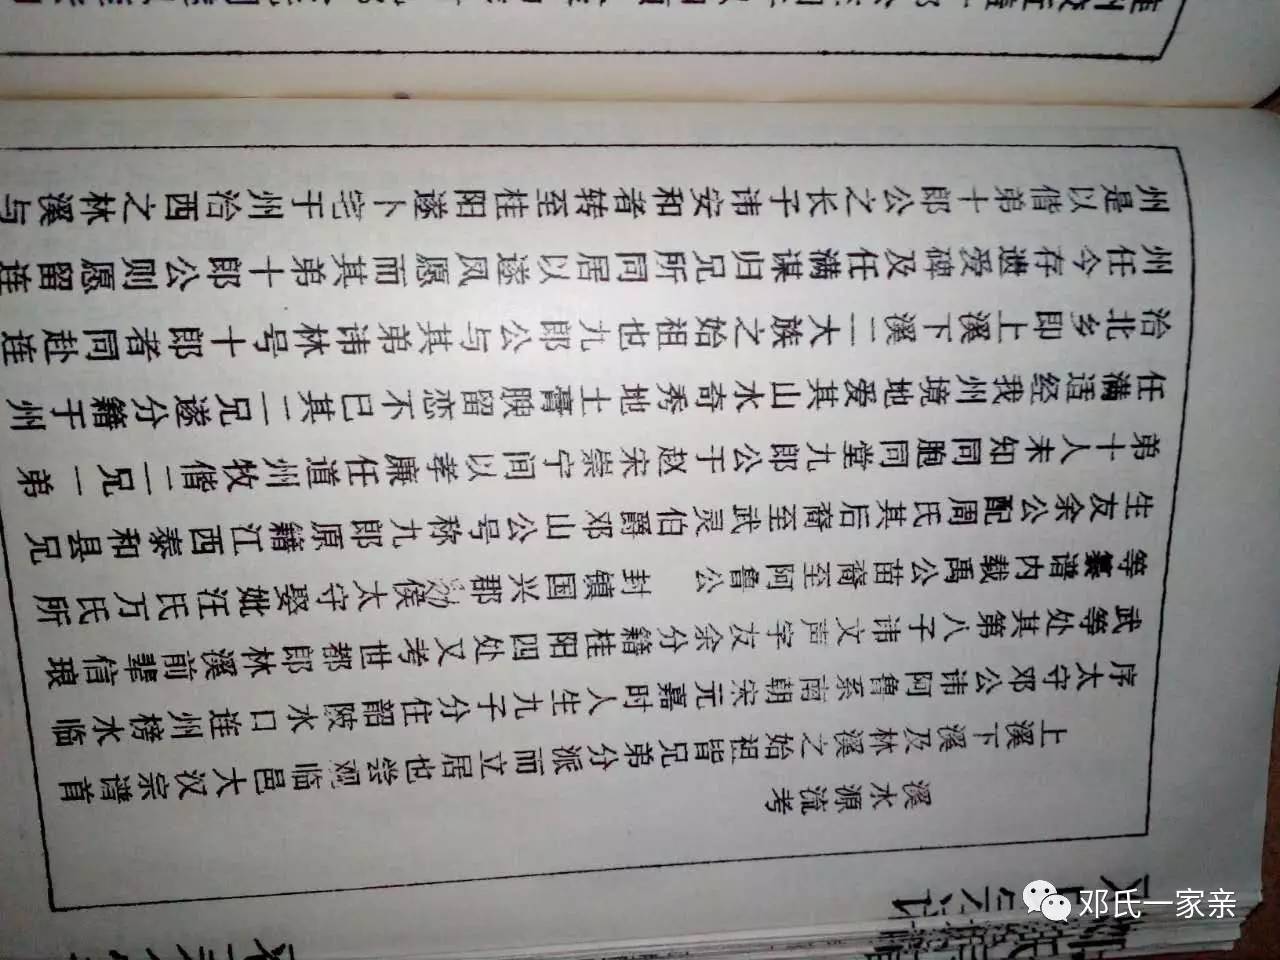 溪水源流考
上溪下溪及林溪之始祖皆兄弟分派而立居也尝观临邑大汉宗谱首
序太守邓公讳阿鲁系南朝宋元嘉时人生九子分住韶陂水口连州榜水临
武等处其第八子讳文声字友余分籍桂阳四处又考世都郎林溪前辈信琅
等纂谱内载禹公苗裔至阿鲁公 封镇国兴郡侯太守娶妣汪氏万氏所
生友余公配周氏其后裔至武灵伯爵邓山公号称九郎原籍江西泰和县兄
弟十人未知同胞同堂九郎公于赵宋崇宁间以孝廉任道州牧偕二兄一弟
任满适经我州境地爱其山水奇秀地土膏腴留恋不已其二兄遂分籍于州
治北乡即上溪下溪二大族之始祖也九郎公与其弟讳林号十郎者同赴连
州任今存遗爱碑及任满谋归兄所同居以遂夙愿而其弟十郎公则愿留连
州是以偕弟十郎公之长子讳安和者转至桂阳遂卜宅于州治西之林溪与
邓氏一家亲